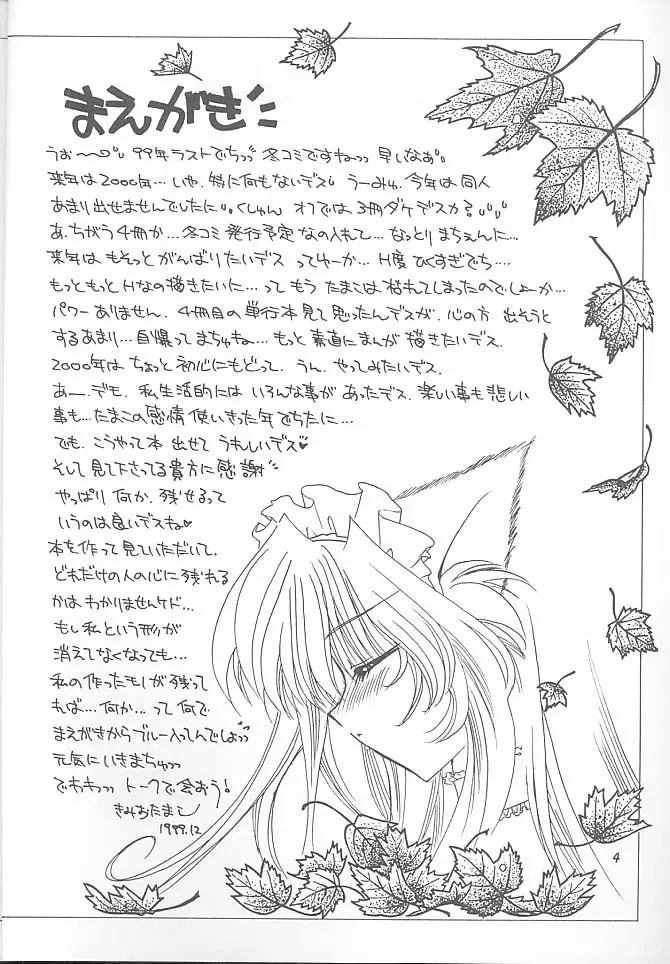 まえがき
うぉ〜〜。 99年ラストでちっ 冬コミですねっっ 早いなぁ。
来年は2000年… いや、特に何もないデス。 うーみゅ、今年は同人
あまり出せませんでしたに。 くしゅん オフでは3冊ダケデスカ?
あ、ちがう 4冊か… 冬コミ 発行予定 なの入れて… なっとり まちぇんに…
来年は もそっと がんばりたいデス って4ーか… H度 ひくすぎでち…
もっともっと Hなの描きたいに… って もう たまこは 枯れてしまったのでしょーか…
パワー ありません、 4冊目の 単行本見て 思ったんデスが、 心の方 出そうと
するあまり… 自爆って まちゅねー… もっと 素直に まんが 描きたいデス、
2000年は ちょっと 初心にもどって、 うん、 やってみたいデス、
あー、デモ、 私生活的には いろんな事が あったデス、 楽しい事も 悲しい
事も… たまこの 感情 使いきった 年でちたに…
でも、 こうやって 本 出せて うれしいデス♥
そして 見て下さってる 貴方に 感謝
やっぱり 何か、 残せるって
いうのは 良いデスね♥
本を作って 見ていただいて、
どれだけの人の心に 残れる
かは わかりませんケド…
もし 私という 形が
消えてなくなっても…
私の 作ったモノが 残って
れば… 何か… って 何で
まえがきから ブルー入ってんでしょっっ
元気に いきまちゅっっ
でわわっっ トークで 会おう!
きみおたまこ
1999.12
4